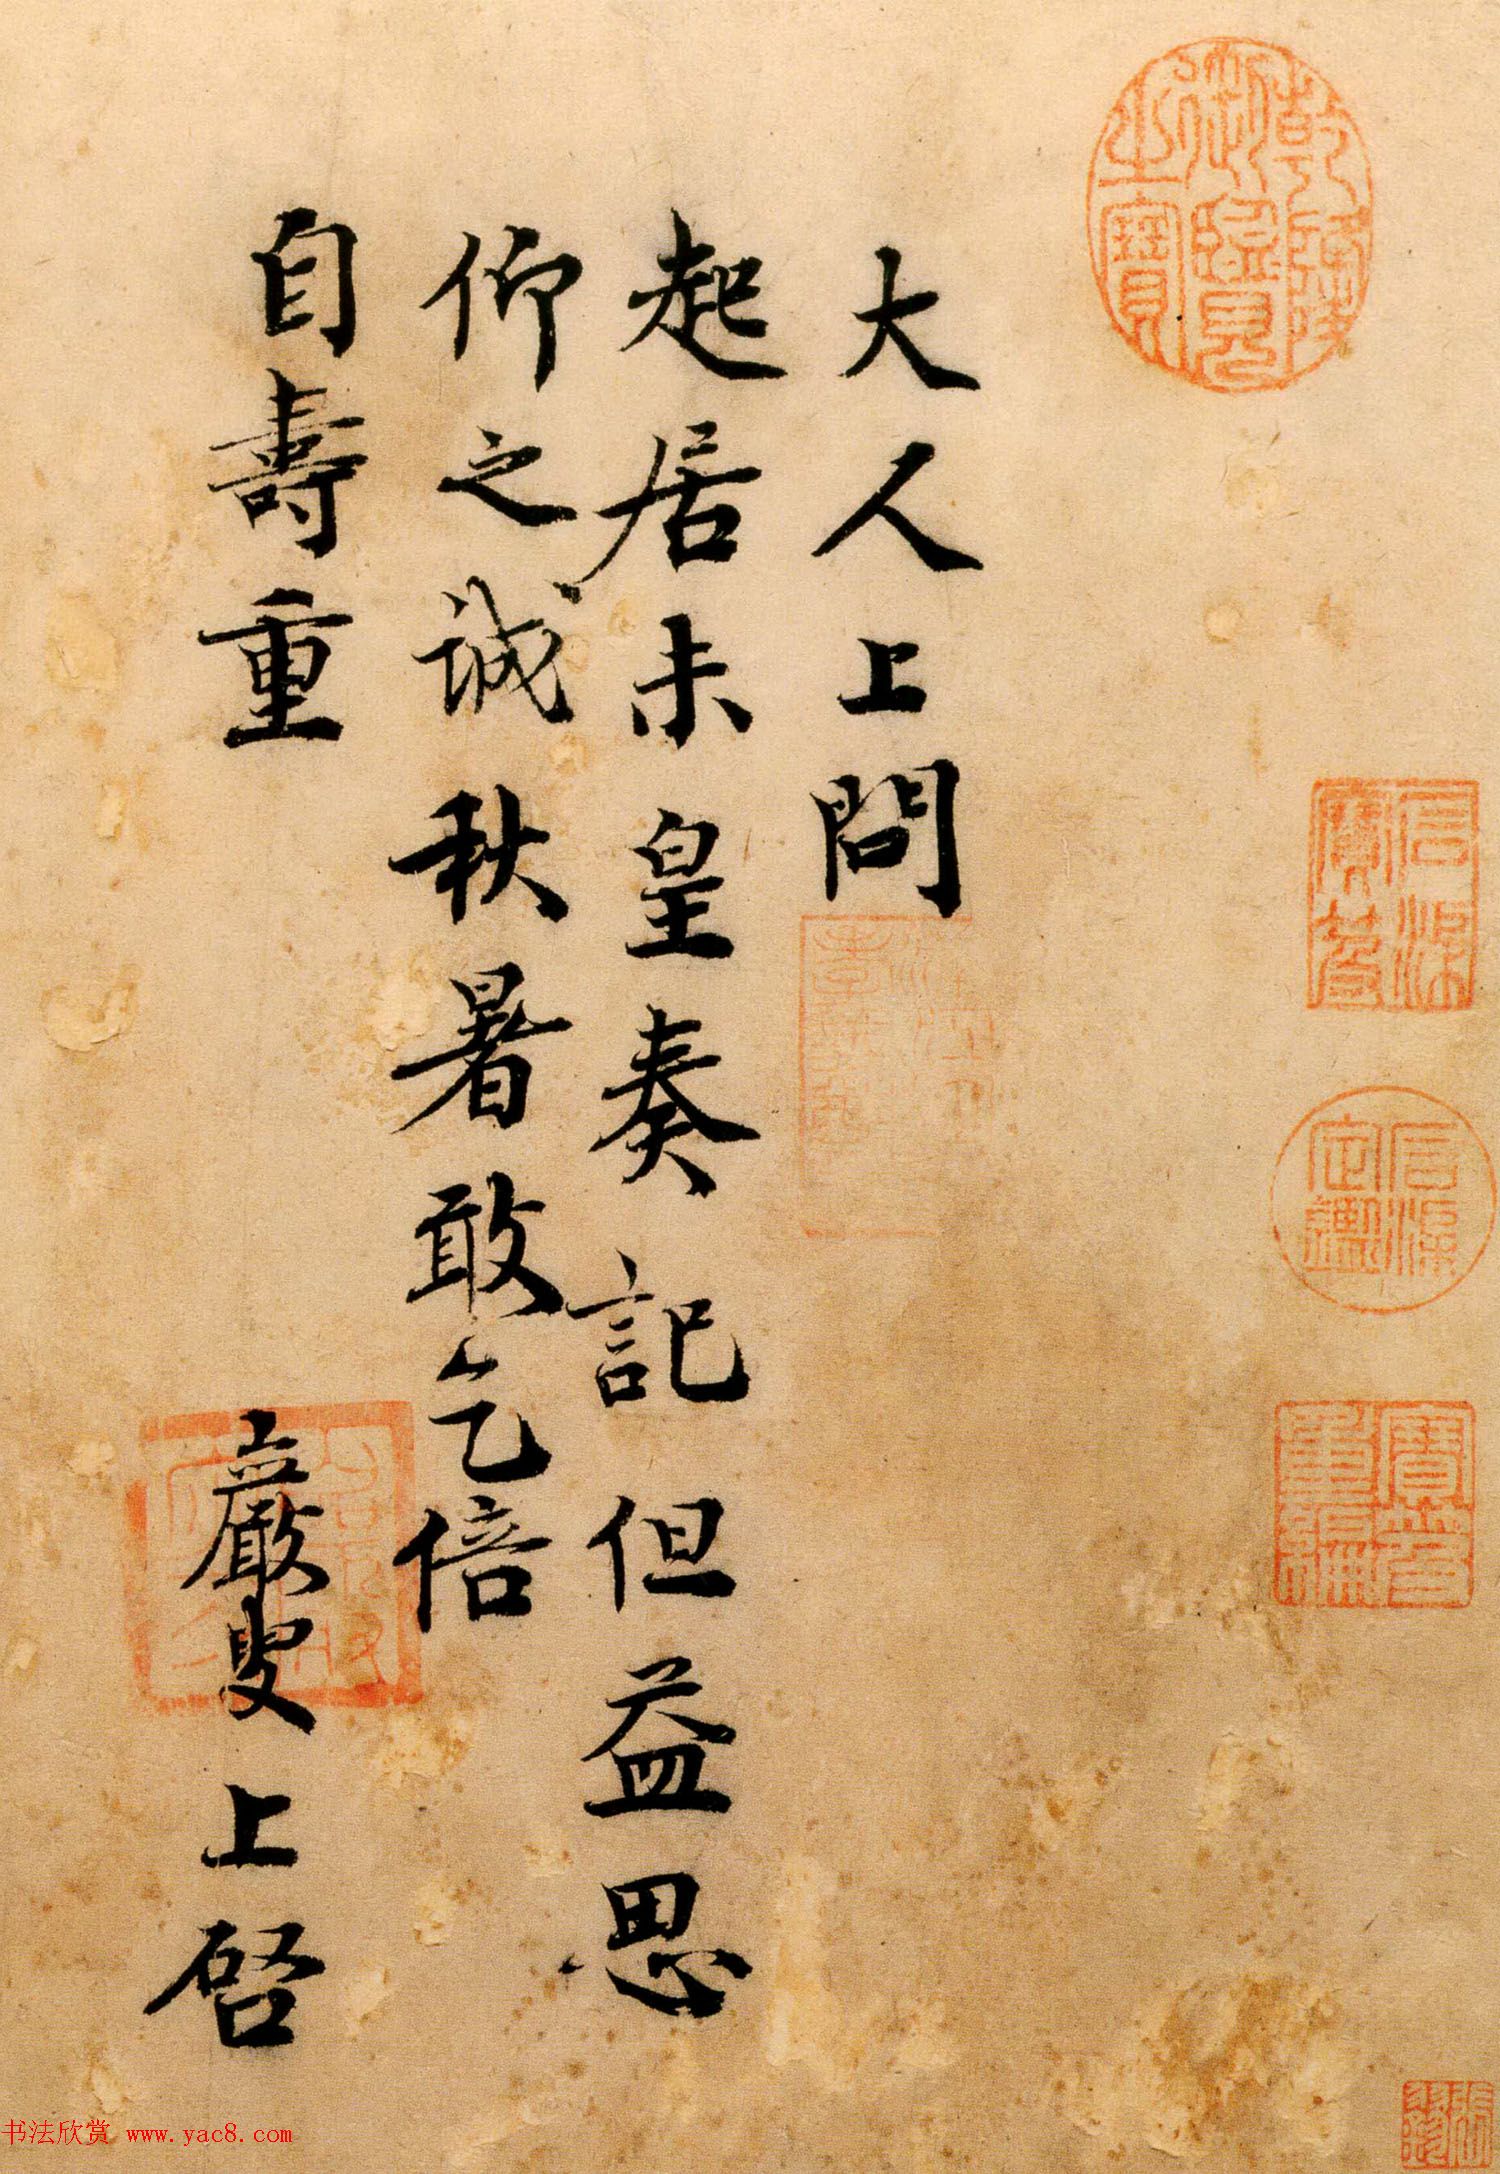 大人上問
起居未皇奏記但益思
仰之誠秋暑敢乞倍
自壽重
嚴叟上啓
乾隆御覽之寶
石渠寶笈
石渠定鑑
寶笈重編
书法欣赏 www.yac8.com